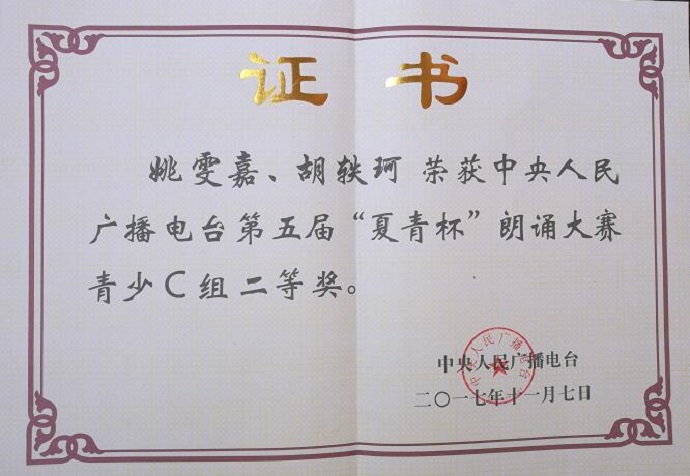 证书
姚雯嘉、胡轶珂 荣获中央人民
广播电台第五届“夏青杯”朗诵大赛
青少C组二等奖。
中央人民广播电台
二〇一七年十一月七日
中央人民广播电台